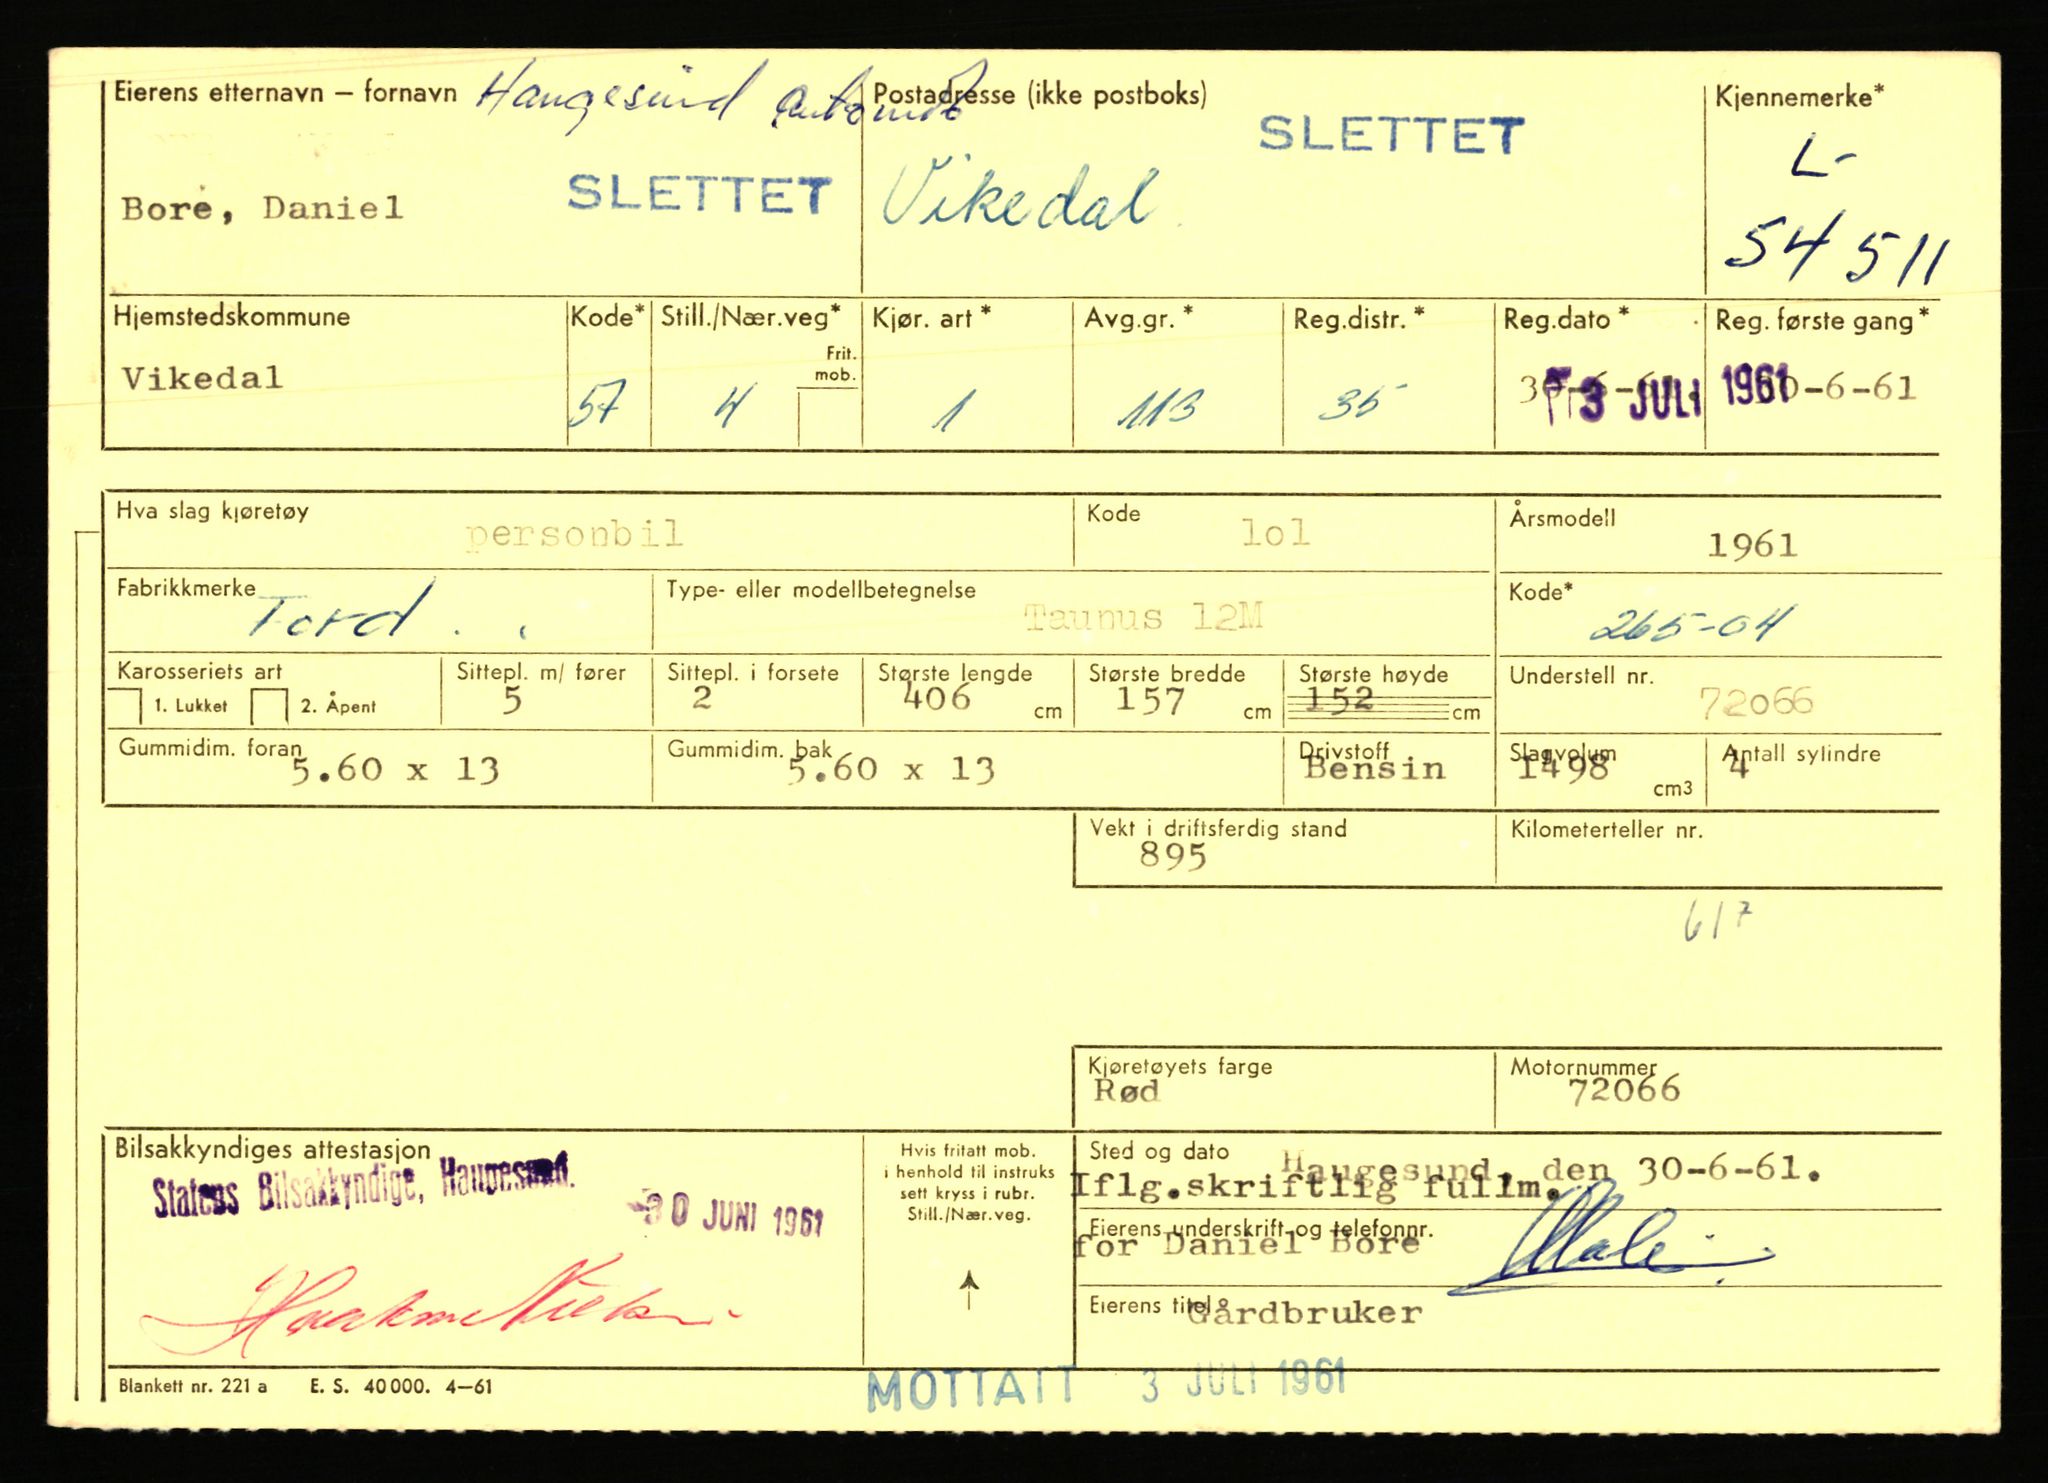 Eierens etternavn – fornavn Haugesund
Postadresse (ikke postboks)
Kjennemerke*
SLETTET
L-
SLETTET
Vikedal
Bore, Daniel
54 511
Hjemstedskommune
Kode*
Still./Nær.veg*
Kjør. art *
Avg.gr. *
Reg.distr. *
Reg.dato *
Reg. første gang*
Frit.
mob.
Vikedal
57
4
1
113
35
30-6-61
3 JULI 1961
30-6-61
Hva slag kjøretøy
personbil
Kode
lol
Årsmodell
1961
Fabrikkmerke
Ford
Type- eller modellbetegnelse
Taunus 12M
Kode*
265-04
Karosseriets art
1. Lukket
2. Åpent
Sittepl. m/ fører
5
Sittepl. i forsete
2
Største lengde
406
cm
Største bredde
157
cm
Største høyde
152
cm
Understell nr.
72066
Gummidim. foran
5.60 x 13
Gummidim. bak
5.60 x 13
Drivstoff
Bensin
Slagvolum
1498
cm3
Antall sylindre
4
Vekt i driftsferdig stand
895
Kilometerteller nr.
617
Kjøretøyets farge
Rød
Motornummer
72066
Bilsakkyndiges attestasjon
Statens Bilsakkyndige, Haugesund.
30 JUNI 1961
Hvis fritatt mob.
i henhold til instruks
sett kryss i rubr.
Still./Nær.veg.
Sted og dato
Haugesund, den 30-6-61.
Iflg.skriftlig fullm.
Eierens underskrift og telefonnr.
for Daniel Bore
Eierens titel
Gårdbruker
Blankett nr. 221 a E. S. 40 000. 4–61
MOTTATT 3 JULI 1961